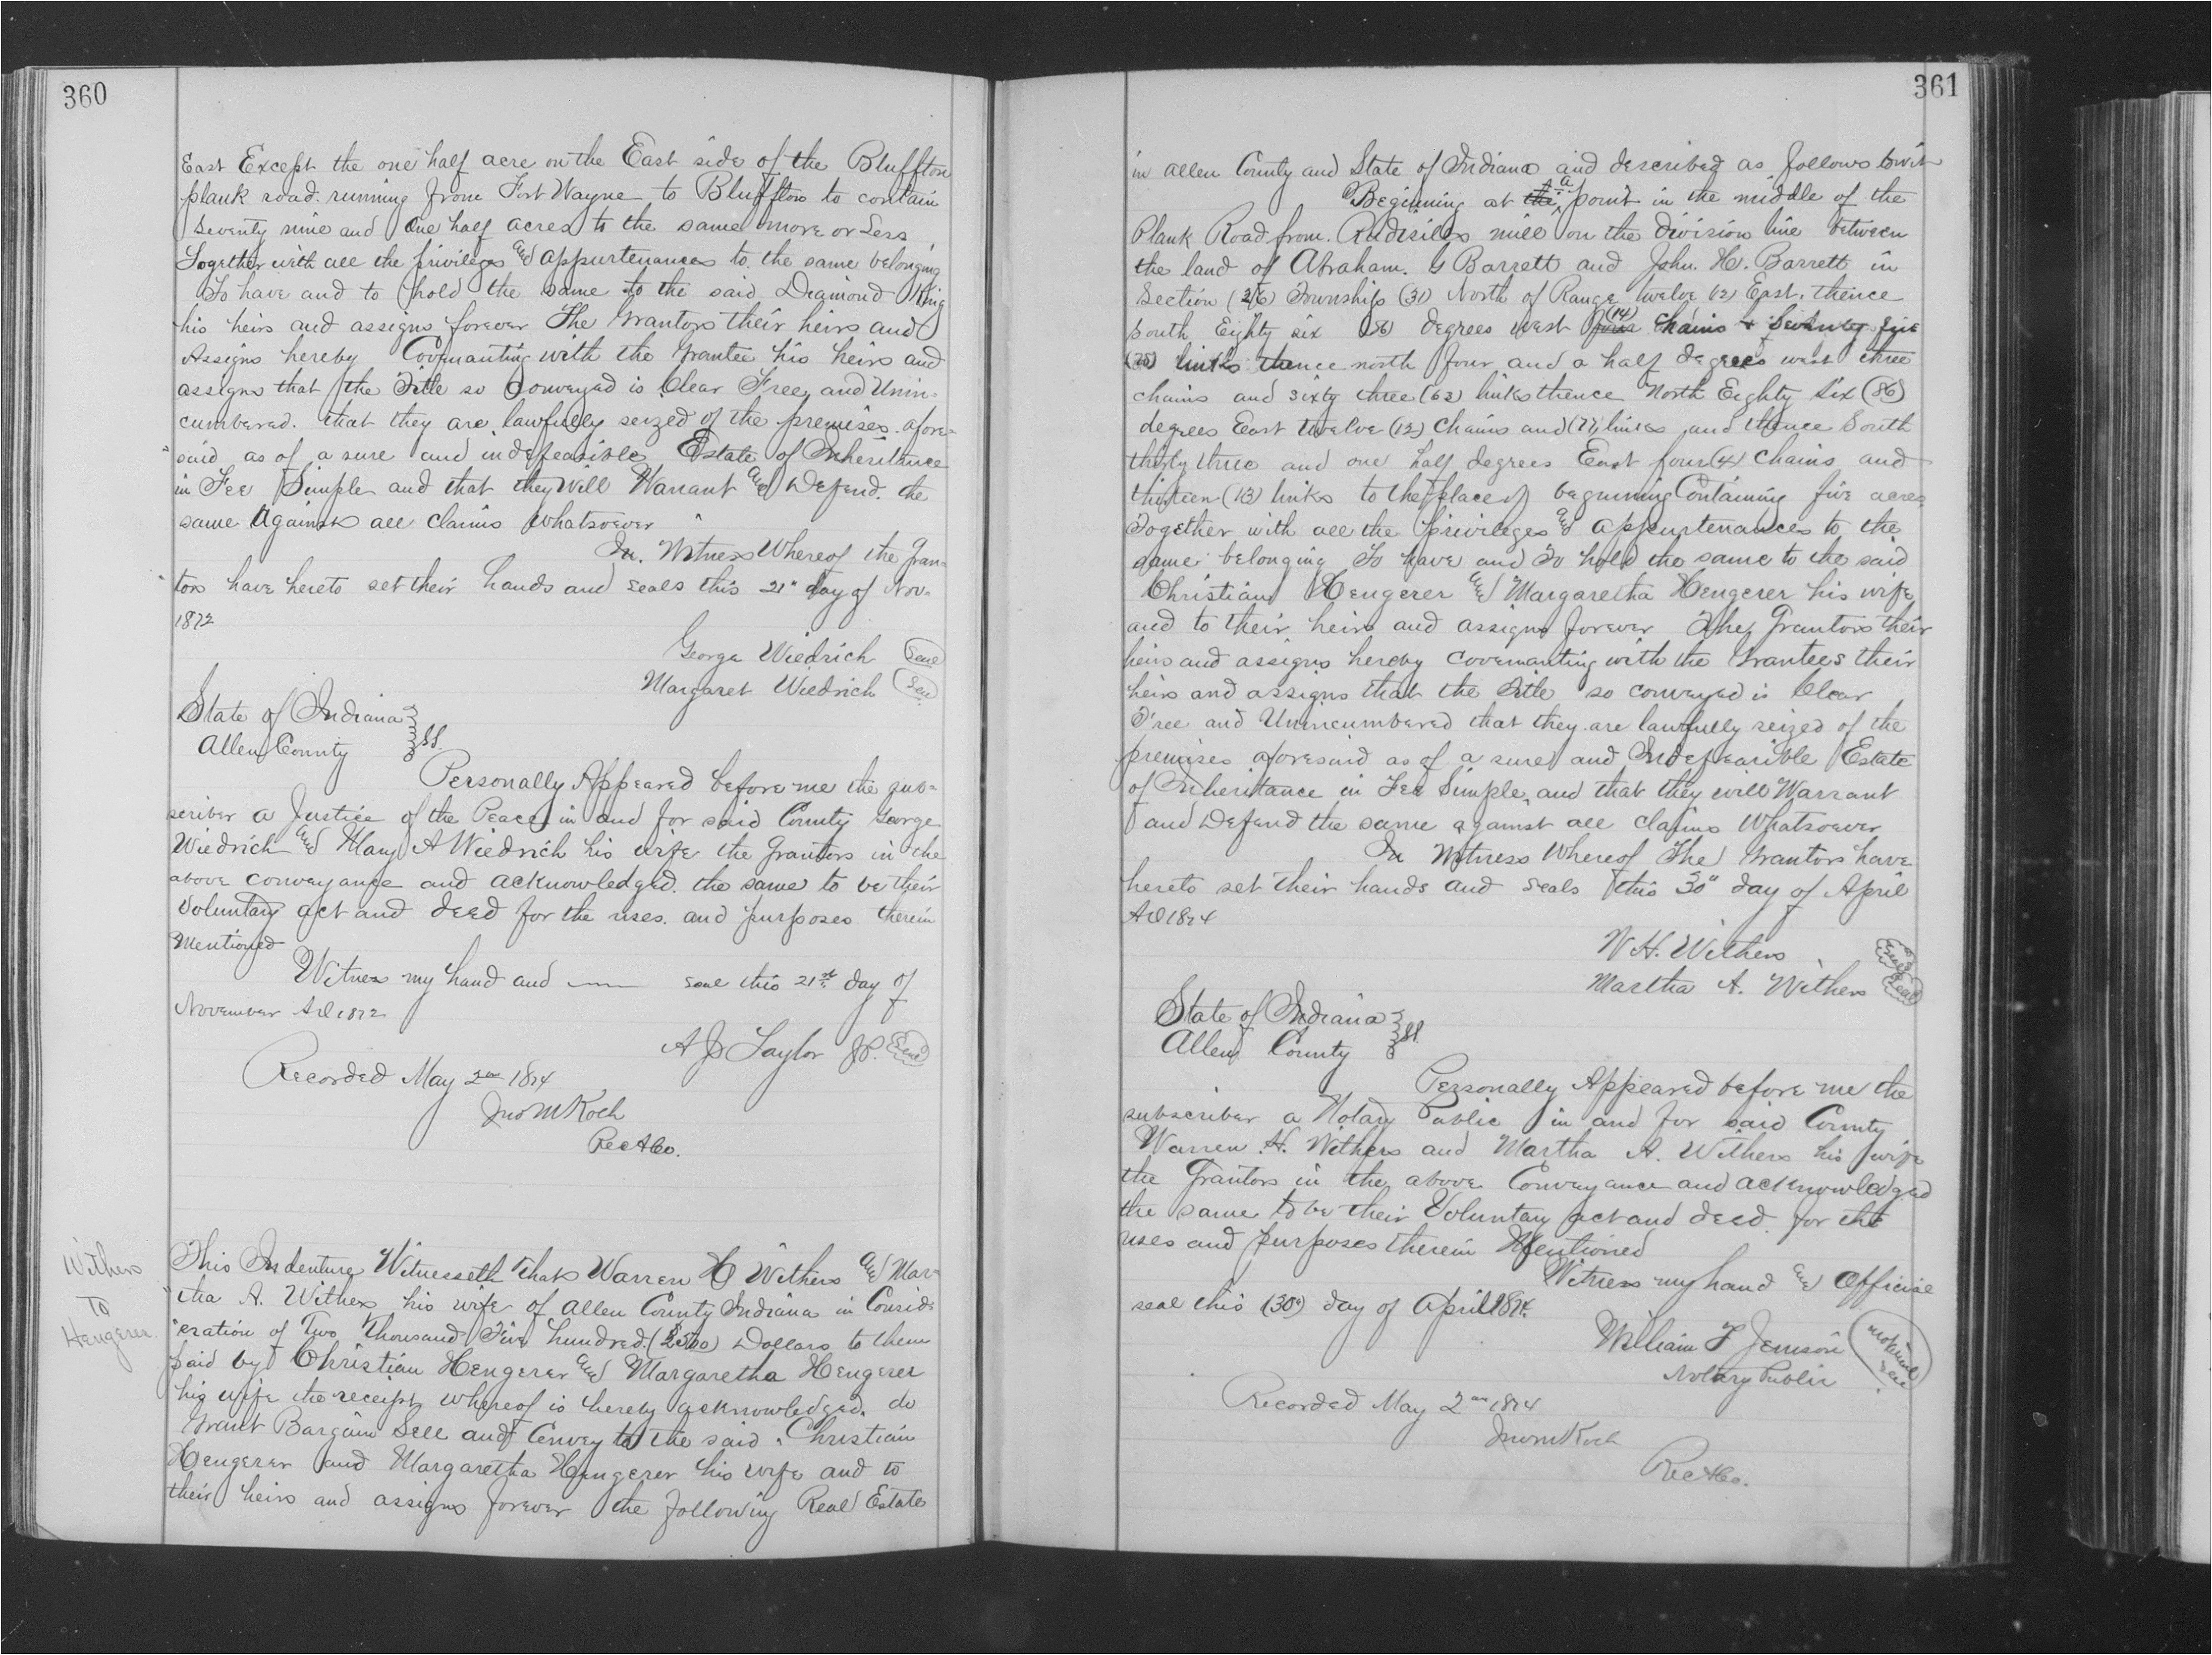 360
East Except the one half acre on the East side of the Bluffton
plank road running from Fort Wayne to Bluffton to contain
Seventy nine and One half acres to the same more or Less
Together with all the privileges and appurtenances to the same belonging
To have and to hold the same to the said Diamond King
his heirs and assigns forever The Grantors their heirs and
Assigns hereby Covenanting with the Grantee his heirs and
assigns that the Title so Conveyed is Clear Free, and Unin-
cumbered. that they are lawfully seized of the premises afore-
"said as of a sure and indefeasible Estate of Inheritance
in Fee Simple and that they Will Warrant and Defend. the
same Against all claims Whatsoever
In. Witness Whereof the Gran-
"tors have hereto set their hands and seals this 21" day of Nov-
1872
George Wiedrich Seal
Margaret Wiedrich Seal
State of Indiana
Allen County SS.
Personally Appeared before me the sub-
scriber a Justice of the Peace in and for said County George
Wiedrich and Mary A Wiedrich his wife the Grantors in the
above conveyance and acknowledged. the same to be their
Voluntary act and deed for the uses. and purposes therein
Mentioned
Witness my hand and seal this 21st day of
November AD 1872
A J Taylor JP. Seal
Recorded May 2nd 1874
Jno M Koch
Rec A Co.
Withers
To
Hengerer.
This Indenture Witnesseth That Warren H Withers and Mar-
"tha A. Withers his wife of Allen County Indiana in Consid-
"eration of Two Thousand Five hundred ($2500) Dollars to them
paid by Christian Hengerer and Margaretha Hengerer
his wife the receipt whereof is hereby acknowledged. do
Grant Bargain Sell and Convey to the said Christian
Hengerer and Margaretha Hengerer his wife and to
their heirs and assigns forever the following Real Estate
361
in Allen County and State of Indiana and described as follows towit
Beginning at the a point in the middle of the
Plank Road from. Rudisiles mill on the division line between
the land of Abraham. G Barrett and John. H. Barrett in
Section (26) Township (31) North of Range twelve 12) East. thence
South Eighty six (86) degrees west four (14) Chains & Seventy five
(75) links thence north four and a half degrees west three
chains and sixty three (63) links thence North Eighty Six (86)
degrees East Twelve (12) Chains and (77) links and thence South
thirty three and one half degrees East four (4) Chains and
thirteen (13) links to the place of beginning Containing five acres
Together with all the privileges and appurtenances to the
same belonging To have and To hold the same to the said
Christian Hengerer and Margaretha Hengerer his wife
and to their heirs and assigns forever The Grantors their
heirs and assigns hereby covenanting with the Grantees their
heirs and assigns that the Title so conveyed is Clear
Free and Unincumbered that they are lawfully seized of the
premises aforesaid as of a sure and Indefeasible Estate
of Inheritance in Fee Simple, and that they will Warrant
and Defend the same against all claims Whatsoever
In Witness Whereof The Grantors have
hereto set their hands and seals this 30" day of April
AD 1874
W H. Withers Seal
Martha A. Withers Seal
State of Indiana
Allen County SS
Personally Appeared before me the
subscriber a Notary Public in and for said County
Warren H. Withers and Martha A. Withers his wife
the Grantors in the above Conveyance and acknowledged
the same to be their Voluntary act and deed for the
uses and purposes therein Mentioned
Witness my hand and Official
seal this (30") day of April 1874.
William T Jemison Notarial Seal
Notary Public
Recorded May 2nd 1874
Jno M Koch
Rec A Co.